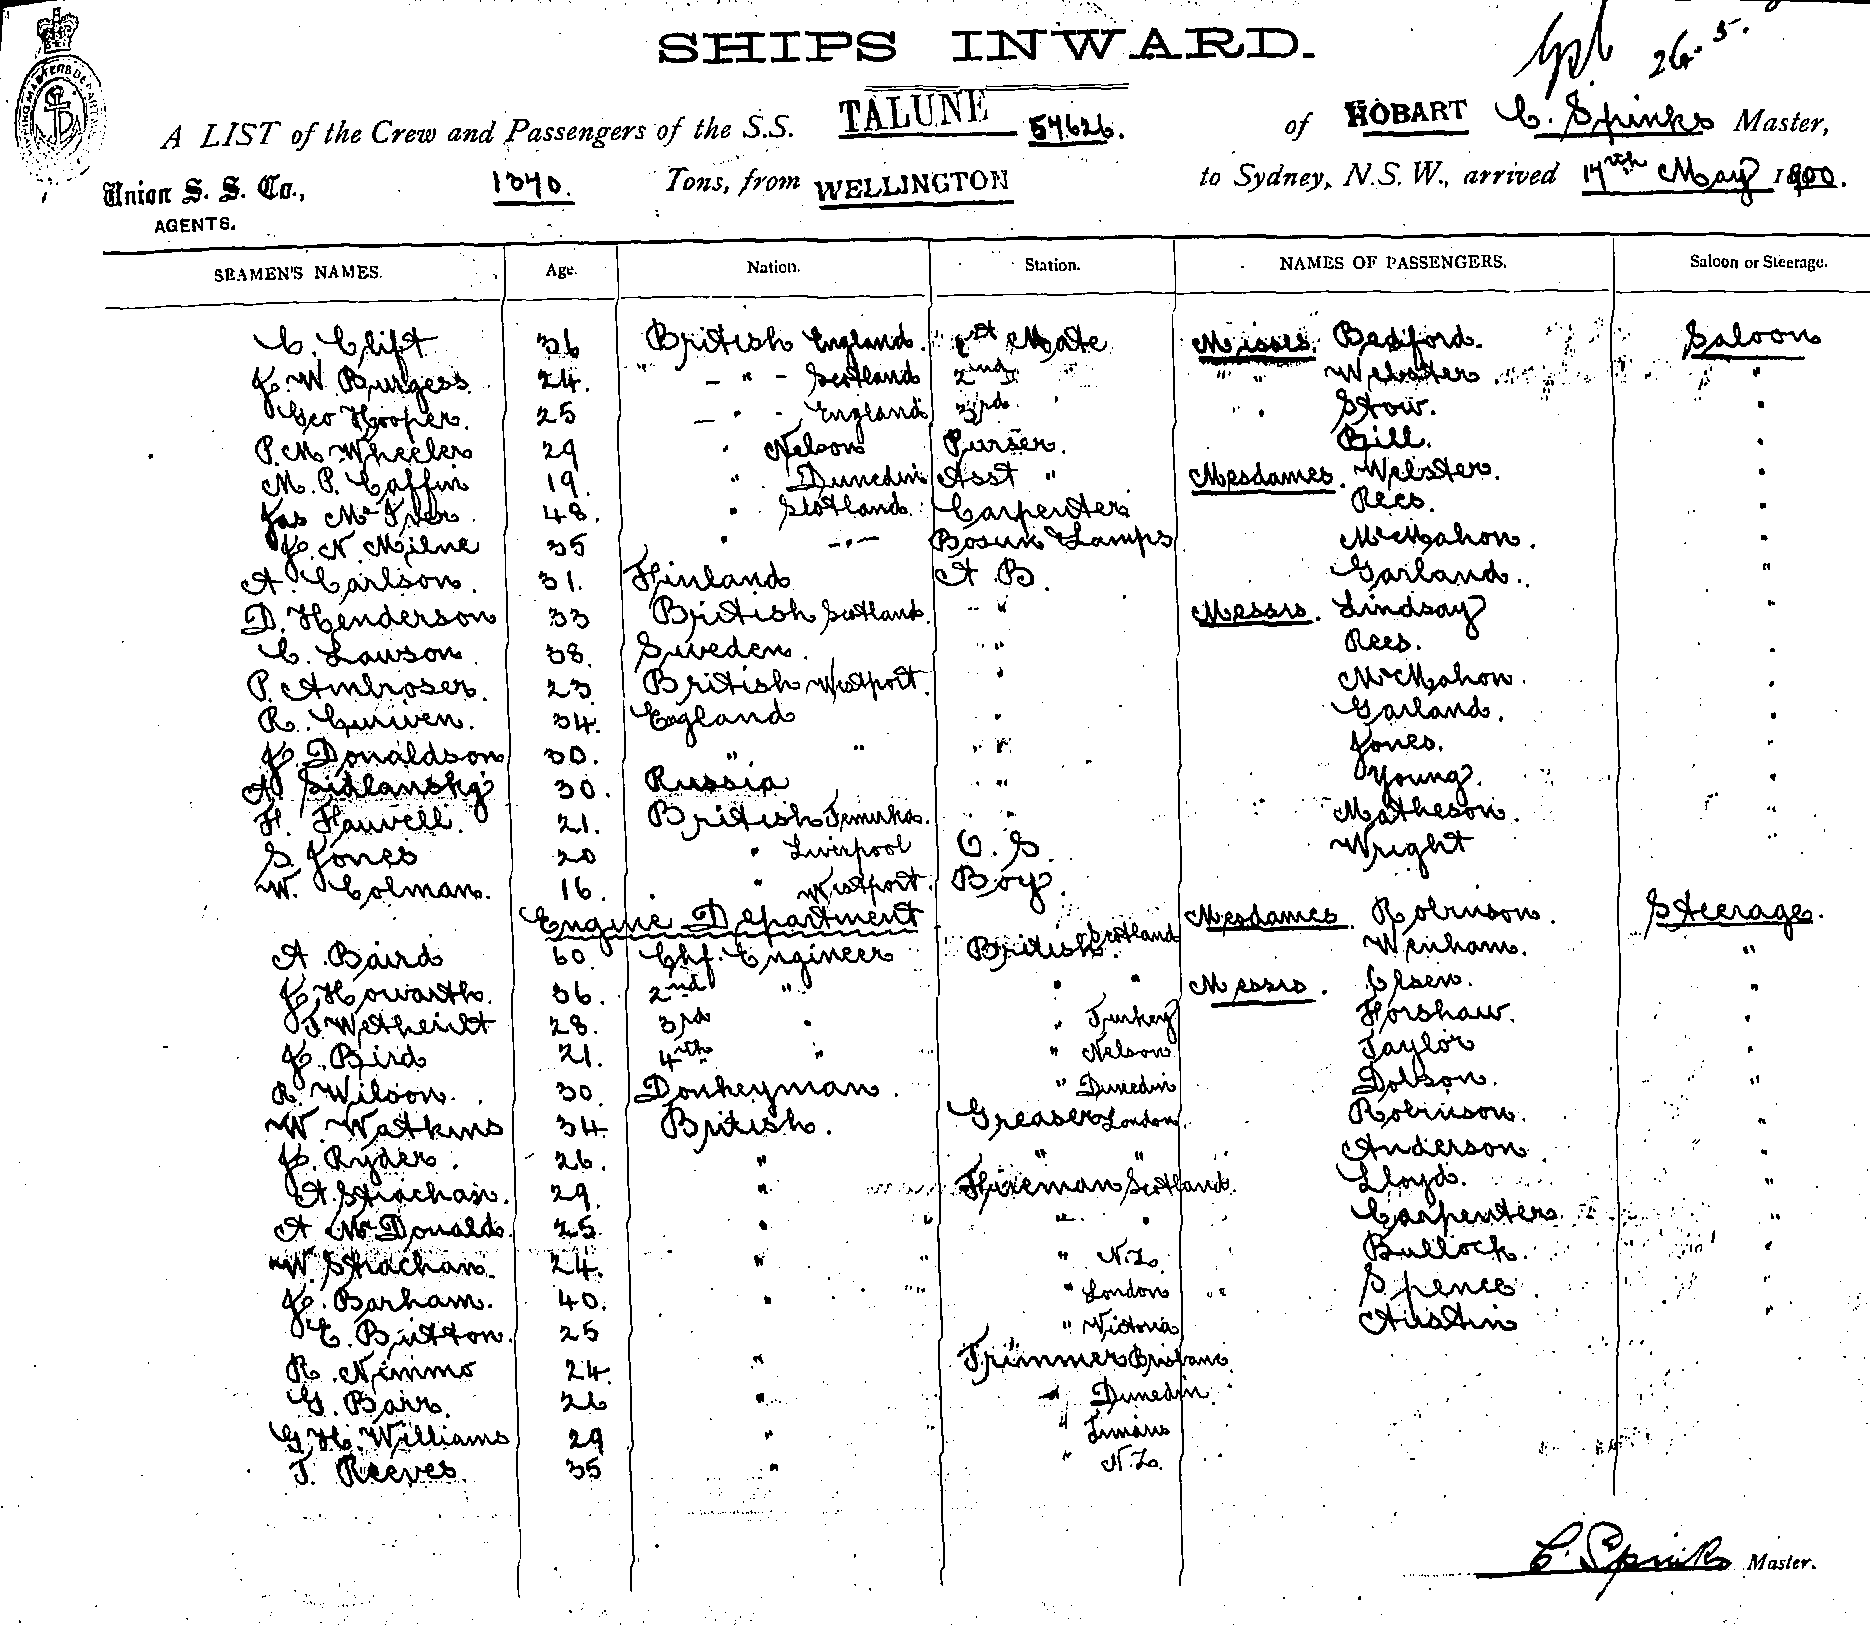 SHIPS INWARD.
26. 5.
A LIST of the Crew and Passengers of the S.S. TALUNE 57626. of HOBART C. Spinks Master,
Union S. S. Co., 1370. Tons, from WELLINGTON to Sydney, N.S.W., arrived 17th May 1900.
AGENTS.
SEAMEN'S NAMES. Age. Nation. Station. NAMES OF PASSENGERS. Saloon or Steerage.
C. Clift 36 British England. 1st Mate Misses Bedford. Saloon
J W Burgess 24. " - " - Scotland 2nd " " " Webster "
Geo Hooper. 25 - " - England 3rd " " " Stow. "
P. M Wheeler 29 " Nelson Purser. Bill. "
M. P. Caffin 19. " Dunedin Asst " Mesdames. Webster. "
Jas McIver 48. " Scotland. Carpenter. Rees. "
J. N. Milne 35 " - " - Bosun & Lamps McMahon. "
A. Carlson. 31. Finland A. B. Garland. "
D. Henderson 33 British Scotland. " Messrs. Lindsay "
C. Lawson. 38. Sweden. " Rees. "
P. Ambroser. 23 British Westport. " McMahon. "
R. Curwen. 34. England " Garland. "
J Donaldson 30. " " " Jones. "
A Sidlansky 30. Russia " Young. "
F. Fauvell. 21. British Temuka. " Matheson. "
S Jones 20 " Liverpool O. S. Wright "
W. Colman. 16. " Westport. Boy.
Engine Department Mesdames. Robinson. Steerage.
A. Baird 60. Chf. Engineer British Scotland Wenham. "
J Howarth. 36. 2nd " " " Messrs. Olsen. "
T. Wetherilt 28. 3rd " " Turkey Forshaw. "
J. Bird 21. 4th " " Nelson Taylor "
R. Wilson. 30. Donkeyman. " Dunedin Dobson. "
W. Watkins 34. British. Greaser London. Robinson. "
J. Ryder. 26. " " " Anderson. "
A. Strachan. 29. " Fireman Scotland. Lloyd. "
A McDonald. 25. " " " Carpenter. "
W. Strachan. 24. " " N.Z. Bullock. "
J. Barham. 40. " " London Spence. "
E. Button. 25 " Victoria Austin "
R. Nimmo 24. " Trimmer Brisbane.
G. Barr. 26 " " Dunedin.
G. H. Williams 29 " " Timaru
T. Reeves. 35 " " N.Z.
C. Spinks Master.